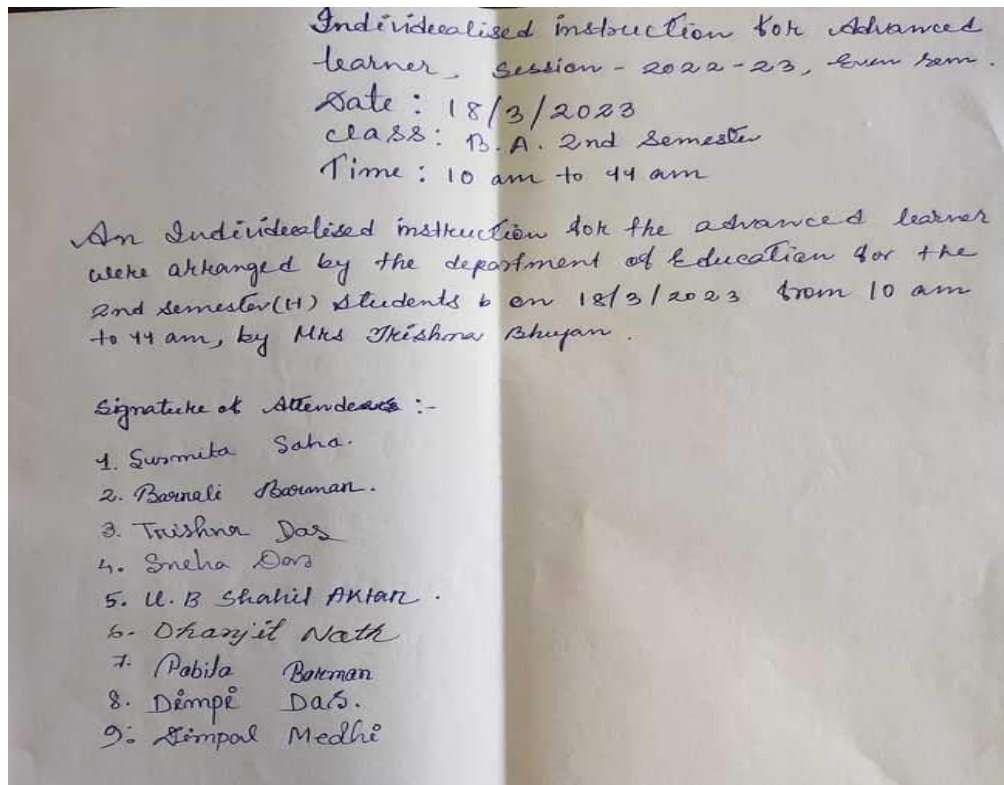 Individualised instruction for Advanced
learner, Session - 2022-23, Even Sem.
Date : 18/3/2023
class: B.A. 2nd Semester
Time : 10 am to 11 am
An Individealised instruction for the advanced learner
were arranged by the department of Education for the
2nd semester(H) students on 18/3/2023 from 10 am
to 11 am, by Mrs Trishna Bhuyan.
Signature of Attendears :-
1. Susmita Saha.
2. Barnali Barman.
3. Trishna Das
4. Sneha Das
5. U. B Shahil Aktar.
6. Dhanjit Nath
7. Pabila Barman
8. Dimpi Das.
9. Dimpal Medhi